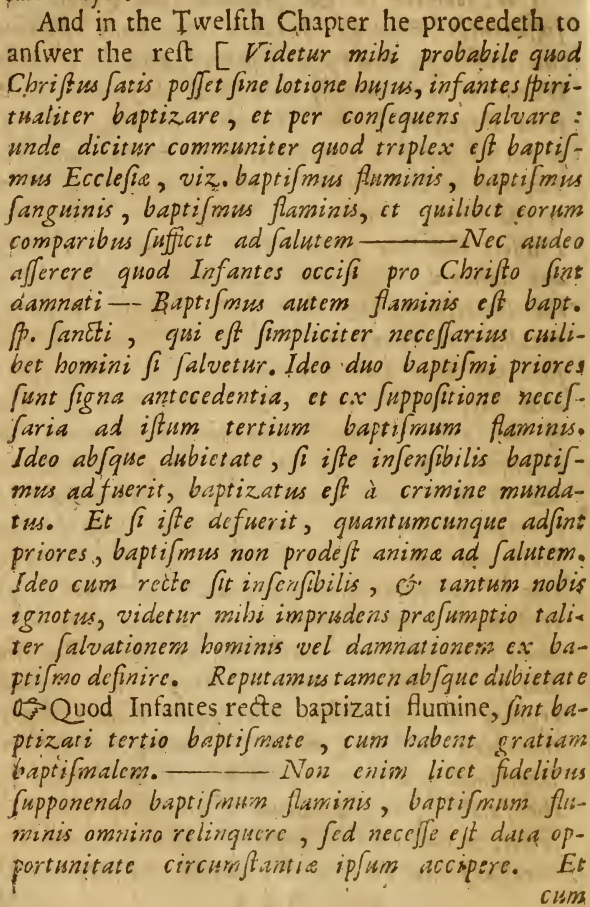 And in the Twelfth Chapter he proceedeth to
anſwer the reſt [ Videtur mihi probabile quod
Chriſtus ſatis poſſet ſine lotione hujus, infantes ſpiri-
tualiter baptizare , et per conſequens ſalvare :
unde dicitur communiter quod triplex eſt baptiſ-
mus Eccleſiæ , viz. baptiſmus fluminis, baptiſmus
ſanguinis , baptiſmus flaminis, et quilibet eorum
comparibus ſufficit ad ſalutem ——— Nec audeo
aſſerere quod Infantes occiſi pro Chriſto ſint
damnati — Baptiſmus autem flaminis eſt bapt.
ſp. ſancti , qui eſt ſimpliciter neceſſarius cuili-
bet homini ſi ſalvetur. Ideo duo baptiſmi priores
ſunt ſigna antecedentia, et ex ſuppoſitione neceſ-
ſaria ad iſtum tertium baptiſmum flaminis.
Ideo abſque dubietate , ſi iſte inſenſibilis baptiſ-
mus adfuerit, baptizatus eſt à crimine munda-
tus. Et ſi iſte defuerit , quantumcunque adſint
priores , baptiſmus non prodeſt animæ ad ſalutem.
Ideo cum recte ſit inſenſibilis , & tantum nobis
ignotus, videtur mihi imprudens præſumptio tali-
ter ſalvationem hominis vel damnationem ex ba-
ptiſmo definire. Reputamus tamen abſque dubietate
☞ Quod Infantes recte baptizati flumine, ſint ba-
ptizati tertio baptiſmate , cum habent gratiam
baptiſmalem. ——— Non enim licet fidelibus
ſupponendo baptiſmum flaminis , baptiſmum flu-
minis omnino relinquere , ſed neceſſe eſt data op-
portunitate circumſtantiæ ipſum accipere. Et
cum